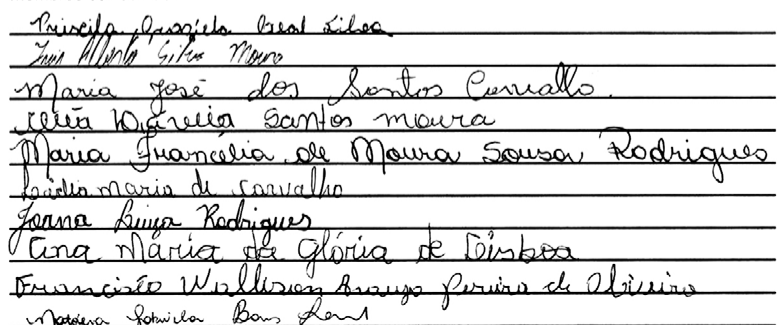 Priscila Graziela Leal Lilva
Luis Alberto Silva Moura
Maria José dos Santos Carvallo.
Santos moura
Maria Francélia de Moura Sousa Rodrigues
maria de carvalho
Joana Luiza Rodrigues
Ana Mária da Glória de Lisboa
Francisco Wallison Araujo Pereira de Oliveira
Gabriela